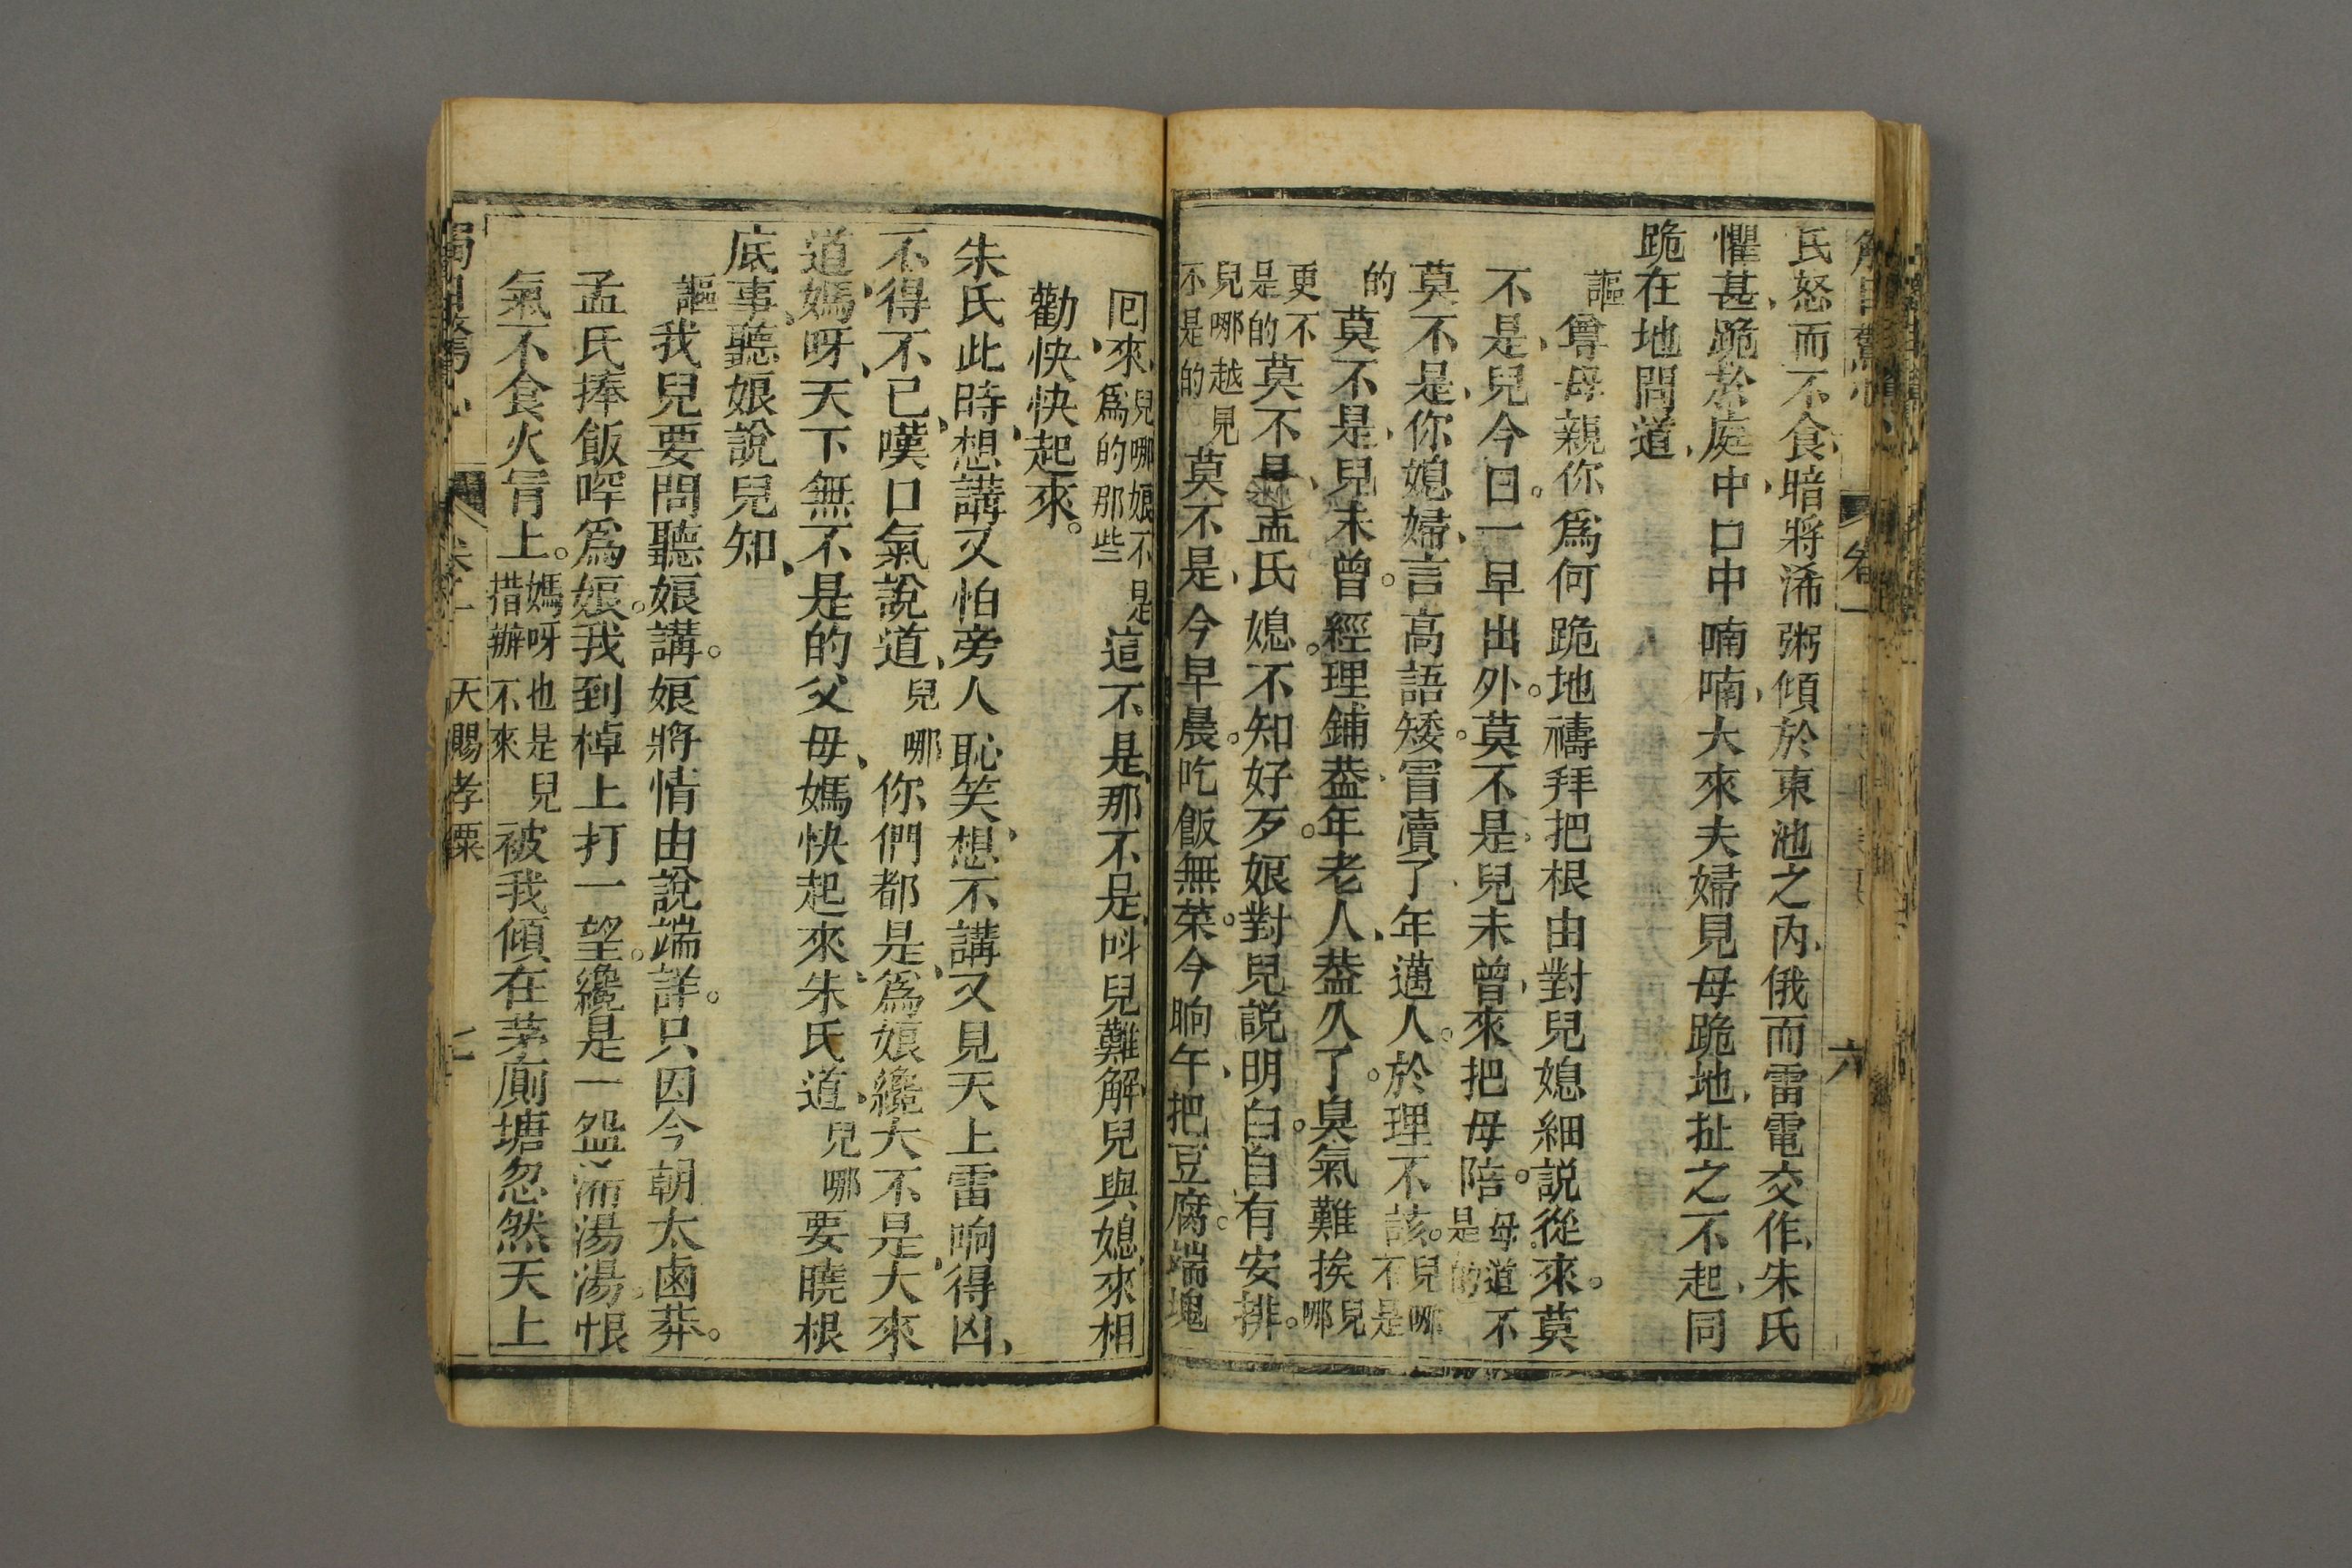 氏怒而不食、暗將浠粥傾於東池之內、俄而雷電交作、朱氏
懼甚、跪於庭中、口中喃喃、大來夫婦見母跪地、扯之不起、同
跪在地問道、
謳尊母親你為何跪地禱拜把根由對兒媳細説從來。莫
不是、兒今日。一早出外。莫不是、兒未曾、來把母陪。母道不是的
莫不是、你媳婦、言高語矮。冒瀆了、年邁人。於理不該。兒哪不是
的莫不是、兒未曾。經理鋪葢、年老人、葢久了。臭氣難挨兒哪
更不是的莫不是、孟氏媳。不知好歹。娘對兒説明白。自有安排。
兒哪越見不是的莫不是、今早晨。吃飯無菜。今晌午、把豆腐。端塊
囘來、兒哪娘不是為的那些這不是、那不是、呌兒難解、兒與媳、來相
勸、快快起來。
朱氏此時、想講又怕旁人恥笑、想不講又見天上雷响得凶、
不得不已、嘆口氣説道、兒哪你們都是、為娘纔大不是、大來
道、媽呀、天下無不是的父母、媽快起來、朱氏道、兒哪要曉根
底事、聽娘說兒知、
謳我兒要問聽娘講。娘將情由說端詳。只因今朝太鹵莽。
孟氏捧飯啐為娘。我到棹上打一望。纔是一盌浠湯湯。恨
氣不食火冐上。媽呀也是兒措辦不來被我傾在茅廁塘忽然天上
卷一 天賜孝粟 七
卷一 六